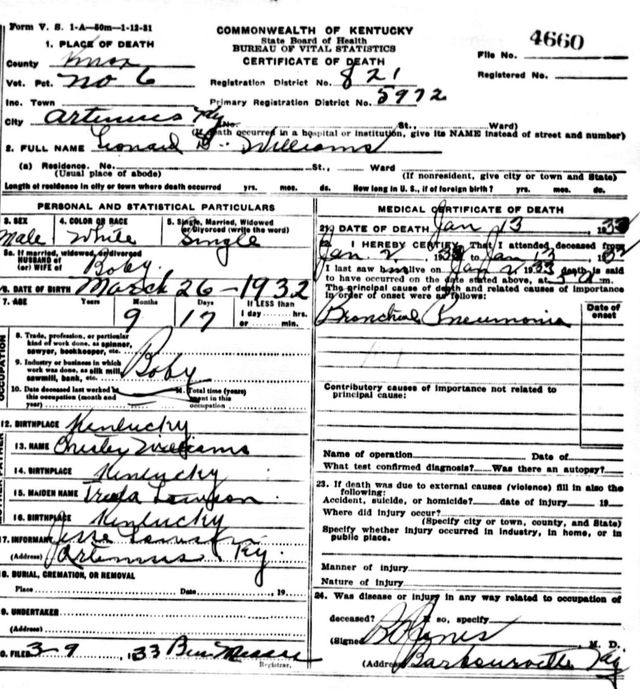 Form V. S. 1-A—50m—1-12-31
COMMONWEALTH OF KENTUCKY
State Board of Health
BUREAU OF VITAL STATISTICS
CERTIFICATE OF DEATH
File No. 4660
Registered No.
1. PLACE OF DEATH
County Knox
Vot. Pct. No 6
Registration District No. 821
Inc. Town
Primary Registration District No. 5972
City Artemus Ky (No. St., Ward)
(If death occurred in a hospital or institution, give its NAME instead of street and number)
2. FULL NAME Leonard Williams
(a) Residence. No. St., Ward
(Usual place of abode) (If nonresident, give city or town and State)
Length of residence in city or town where death occurred yrs. mos. ds. How long in U. S., if of foreign birth? yrs. mos. ds.
PERSONAL AND STATISTICAL PARTICULARS
3. SEX Male
4. COLOR OR RACE White
5. Single, Married, Widowed or Divorced (write the word) Single
5a. If married, widowed, or divorced
HUSBAND of
(or) WIFE of Boby
6. DATE OF BIRTH March 26-1932
7. AGE Years Months Days If LESS than
9 17 1 day hrs. or min.
OCCUPATION
8. Trade, profession, or particular
kind of work done, as spinner,
sawyer, bookkeeper, etc.
9. Industry or business in which
work was done, as silk mill,
sawmill, bank, etc. Boby
10. Date deceased last worked at
this occupation (month and
year)
11. Total time (years)
spent in this
occupation
12. BIRTHPLACE Kentucky
13. NAME Chesley Williams
14. BIRTHPLACE Kentucky
15. MAIDEN NAME
16. BIRTHPLACE Kentucky
17. INFORMANT
(Address) Artemus Ky.
18. BURIAL, CREMATION, OR REMOVAL
Place Date 19
19. UNDERTAKER
(Address)
20. FILED 3-9 1933
Registrar.
MEDICAL CERTIFICATE OF DEATH
21. DATE OF DEATH Jan 13, 1933
22. I HEREBY CERTIFY, That I attended deceased from
Jan. 2, 1933 to Jan 13, 1933
I last saw him alive on Jan 2 1933 death is said
to have occurred on the date stated above, at 5 a m.
The principal cause of death and related causes of importance
in order of onset were as follows:
Date of onset
Bronchial Pneumonia
Contributory causes of importance not related to
principal cause:
Name of operation Date of
What test confirmed diagnosis? Was there an autopsy?
23. If death was due to external causes (violence) fill in also the
following:
Accident, suicide, or homicide? date of injury 19
Where did injury occur?
(Specify city or town, county, and State)
Specify whether injury occurred in industry, in home, or in
public place.
Manner of injury
Nature of injury
24. Was disease or injury in any way related to occupation of
deceased? If so, specify
(Signed) M. D.
(Address) Barbourville Ky